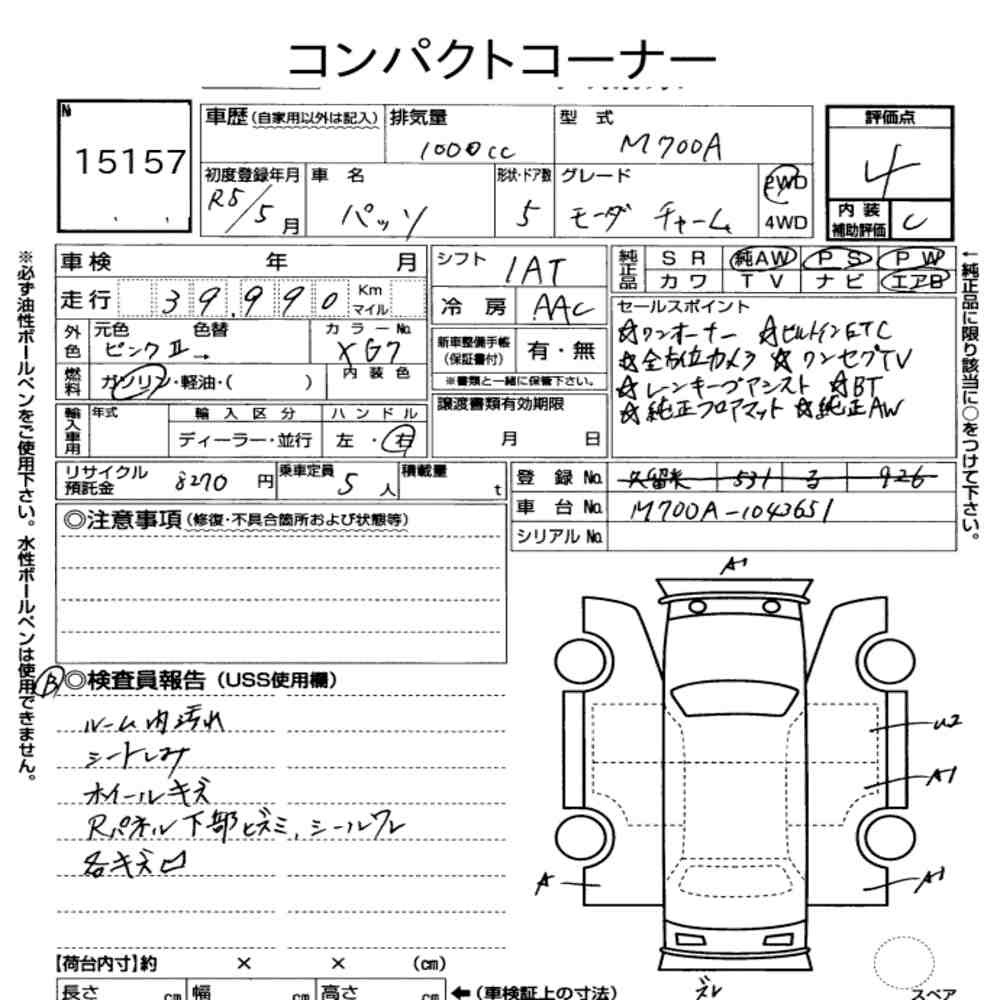 コンパクトコーナー
№
15157
車歴 (自家用以外は記入)
排気量
1000cc
型式
M700A
評価点
4
内装補助評価 C
初度登録年月
R5/5月
車名
パッソ
形状・ドア数
5
グレード
モーダ チャーム
2WD
4WD
車検 年 月
走行 39,990 Km マイル
外色
元色 色替
ピンクⅡ→
カラーNo.
XG7
燃料
ガソリン・軽油・( )
内装色
輸入車用
年式
輸入区分
ディーラー・並行
ハンドル
左・右
シフト IAT
冷房 AAC
新車整備手帳 (保証書付) 有・無
※書類と一緒に保管下さい。
譲渡書類有効期限
月 日
純正品
SR 純AW PS PW
カワ TV ナビ エアB
セールスポイント
☆ワンオーナー ☆ビルトインETC
☆全方位カメラ ☆ワンセグTV
☆レーンキープアシスト ☆BT
☆純正フロアマット ☆純正AW
リサイクル預託金 8270円
乗車定員 5人
積載量 t
登録No. 久留米 531 る 926
車台No. M700A-1043651
シリアルNo.
◎注意事項 (修復・不具合箇所および状態等)
B ◎検査員報告 (USS使用欄)
ルーム内汚れ
シートしみ
ホイールキズ
Rパネル下部ヒズミ、シールワレ
各キズ凹
A1
U2
A1
A
A1
ズレ
【荷台内寸】約 × × (cm)
長さ cm 幅 cm 高さ cm
←(車検証上の寸法)
スペア
※必ず油性ボールペンをご使用下さい。水性ボールペンは使用できません。
←純正品に限り該当に○をつけて下さい。